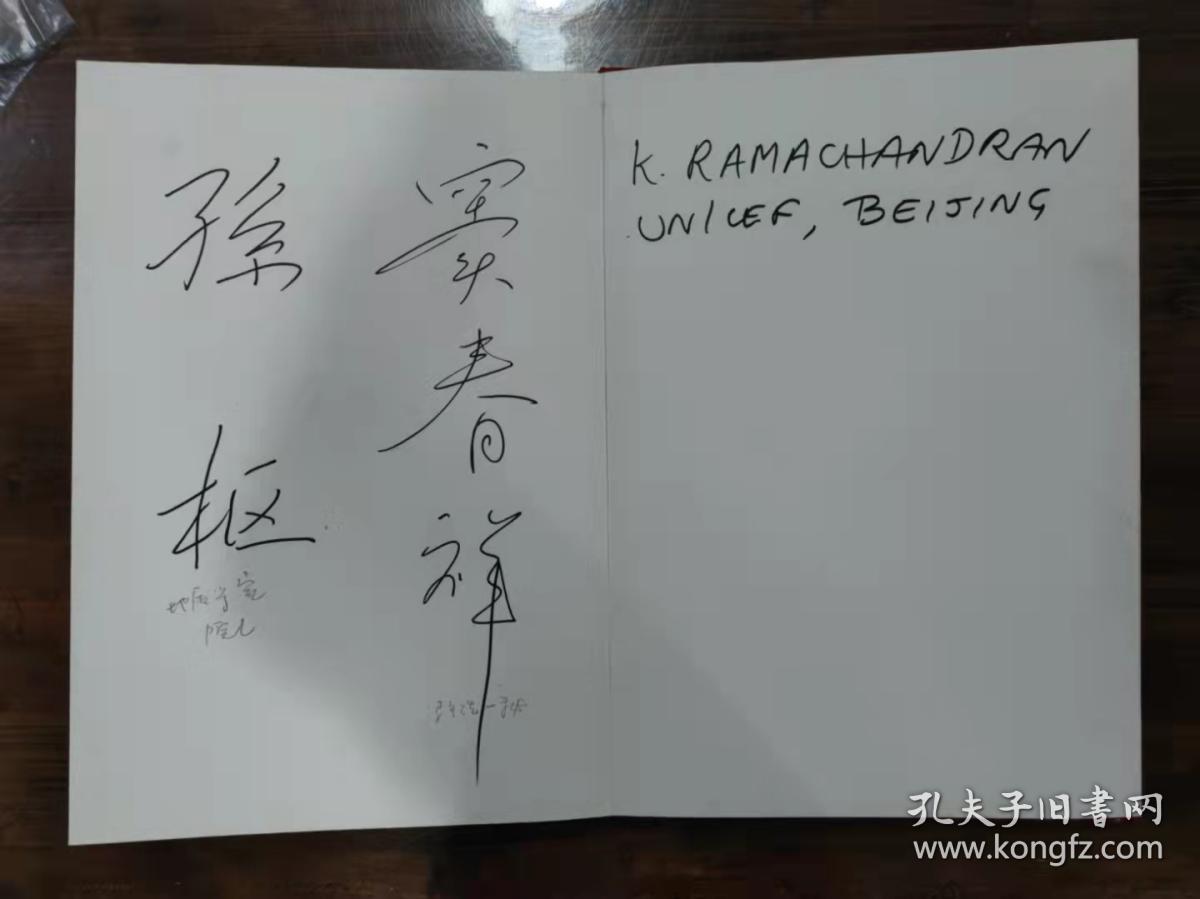 窦春祥
孫枢
地质学家
院士
K. RAMACHANDRAN
UNICEF, BEIJING
孔夫子旧書网
www.kongfz.com